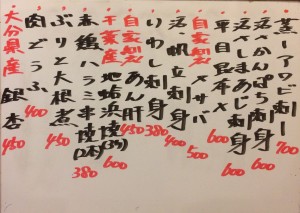 蒸しアワビ 700
活〆かんぱち刺身 600
活〆しまあじ刺身 600
平目昆布〆 600
自家製 〆サバ 500
活 帆立刺身 400
いわし刺身 380
自家製 あん肝 450
千葉産 地蛤浜焼(3ヶ) 600
森鶏ハラミ串焼(2本) 380
ぶりと大根煮 450
肉どうふ 400
大分県産 銀杏 450